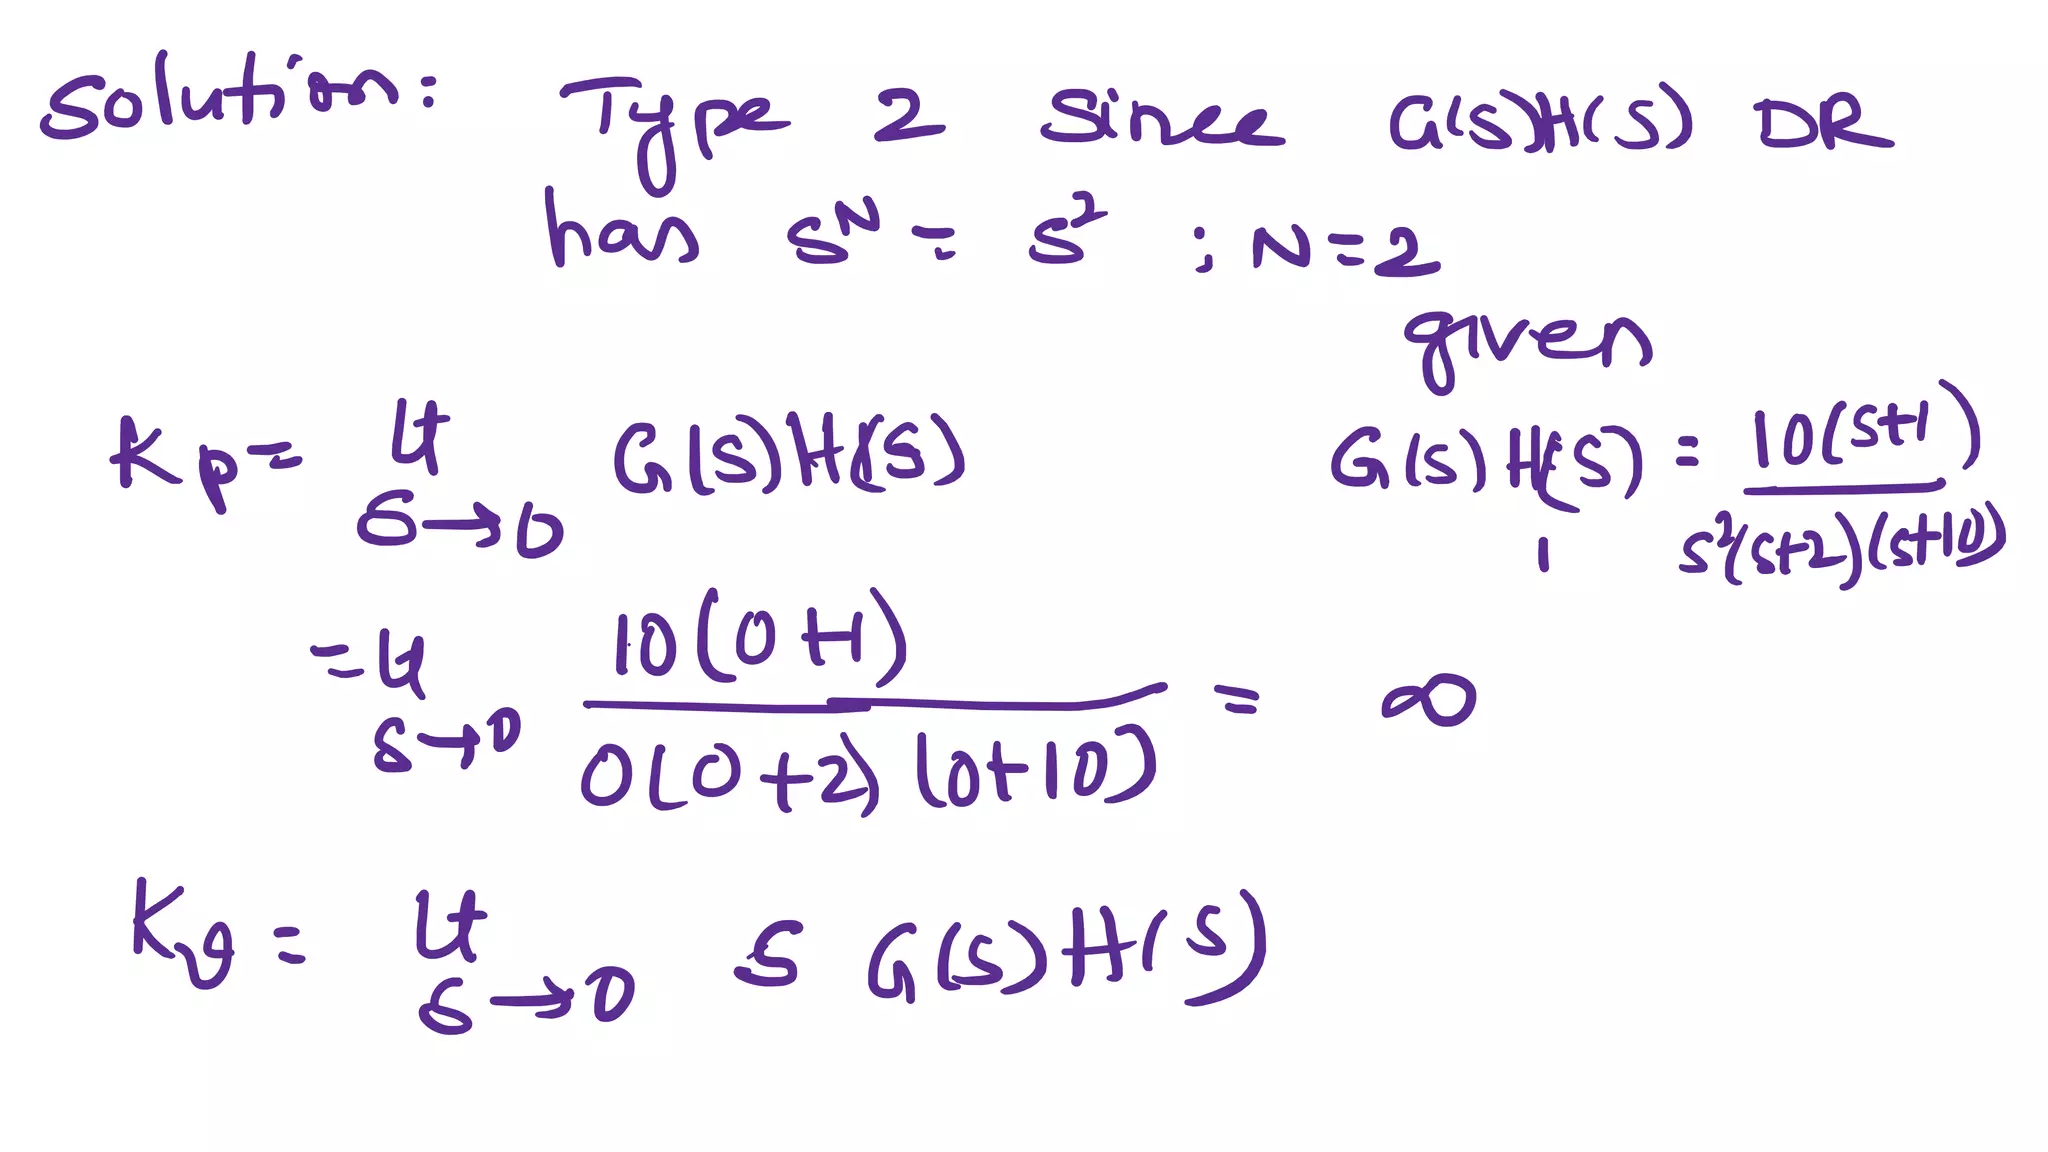 Solution: Type 2 Since G(S)H(S) DR
has S^N = S^2 ; N=2
given
Kp = Lt S→0 G(S)H(S)
G(S)H(S) = 10(S+1) / S^2(S+2)(S+10)
1
= Lt S→0 10(0+1) / 0(0+2)(0+10) = ∞
Kv = Lt S→0 S G(S)H(S)